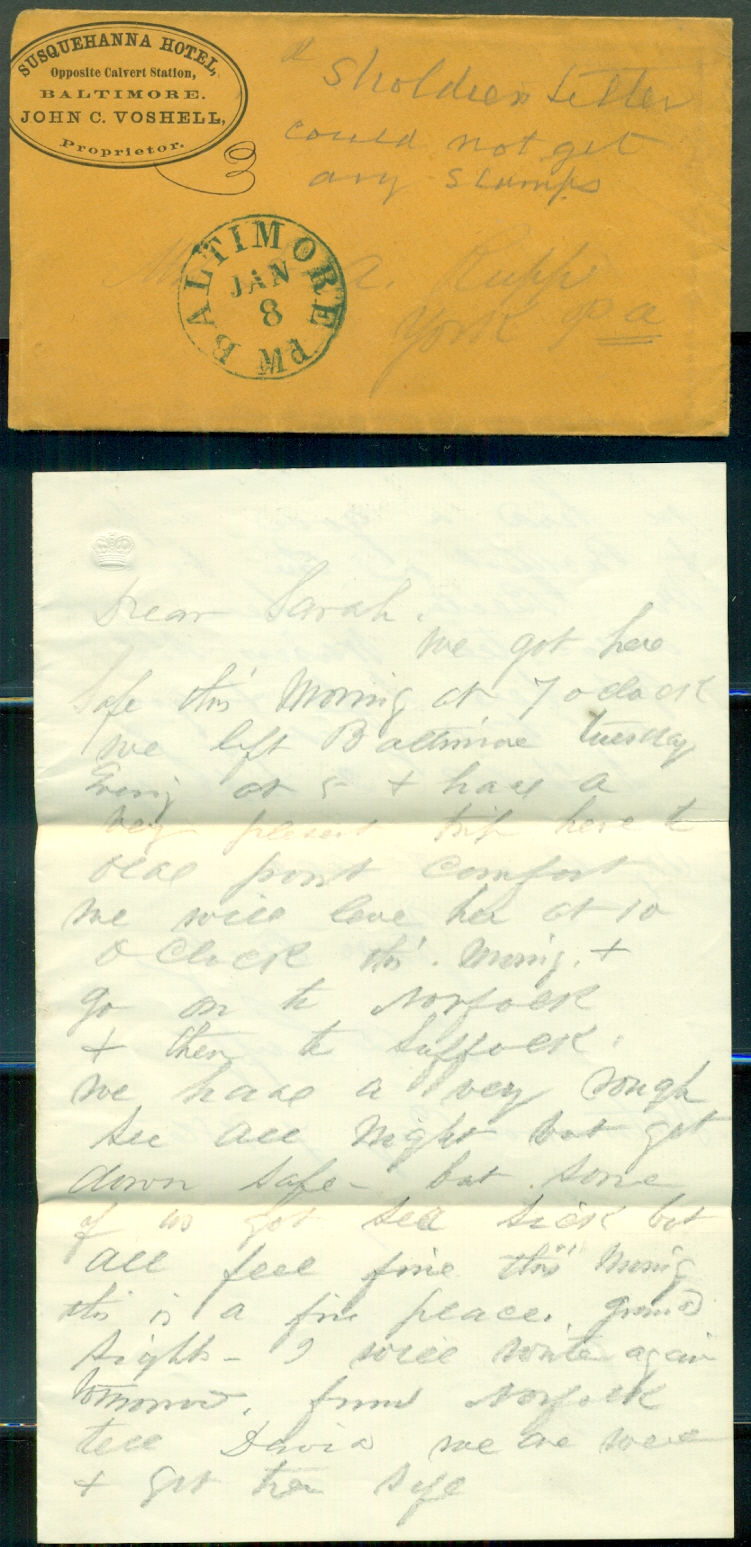 SUSQUEHANNA HOTEL,
Opposite Calvert Station,
BALTIMORE.
JOHN C. VOSHELL,
Proprietor.
a
Sholdiers Letter
could not get
any stamps
BALTIMORE Md
JAN
8
A. Rupp
York Pa
Dear Sarah.
we got here
safe this Morning at 7 oclock
we left Baltimore tuesday
Evning at 5 + have a
very plesent trip here to
olde point Comfort
we will leve her at 10
o Clock this Morning. +
go on to Norfolk
+ then to Suffolk.
we have a very rough
see all Night but got
down safe - but some
of us got sea sick but
all feel fine this Morning
this is a fine place. grand
sight - I will write again
tomorrow. from Norfolk
tell David we are well
+ got here safe